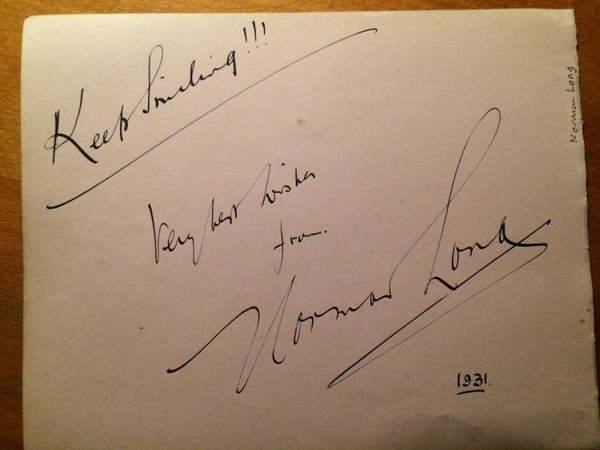 Keep Smiling!!!
Very best wishes
from.
Norman Long
1931.
Norman Long